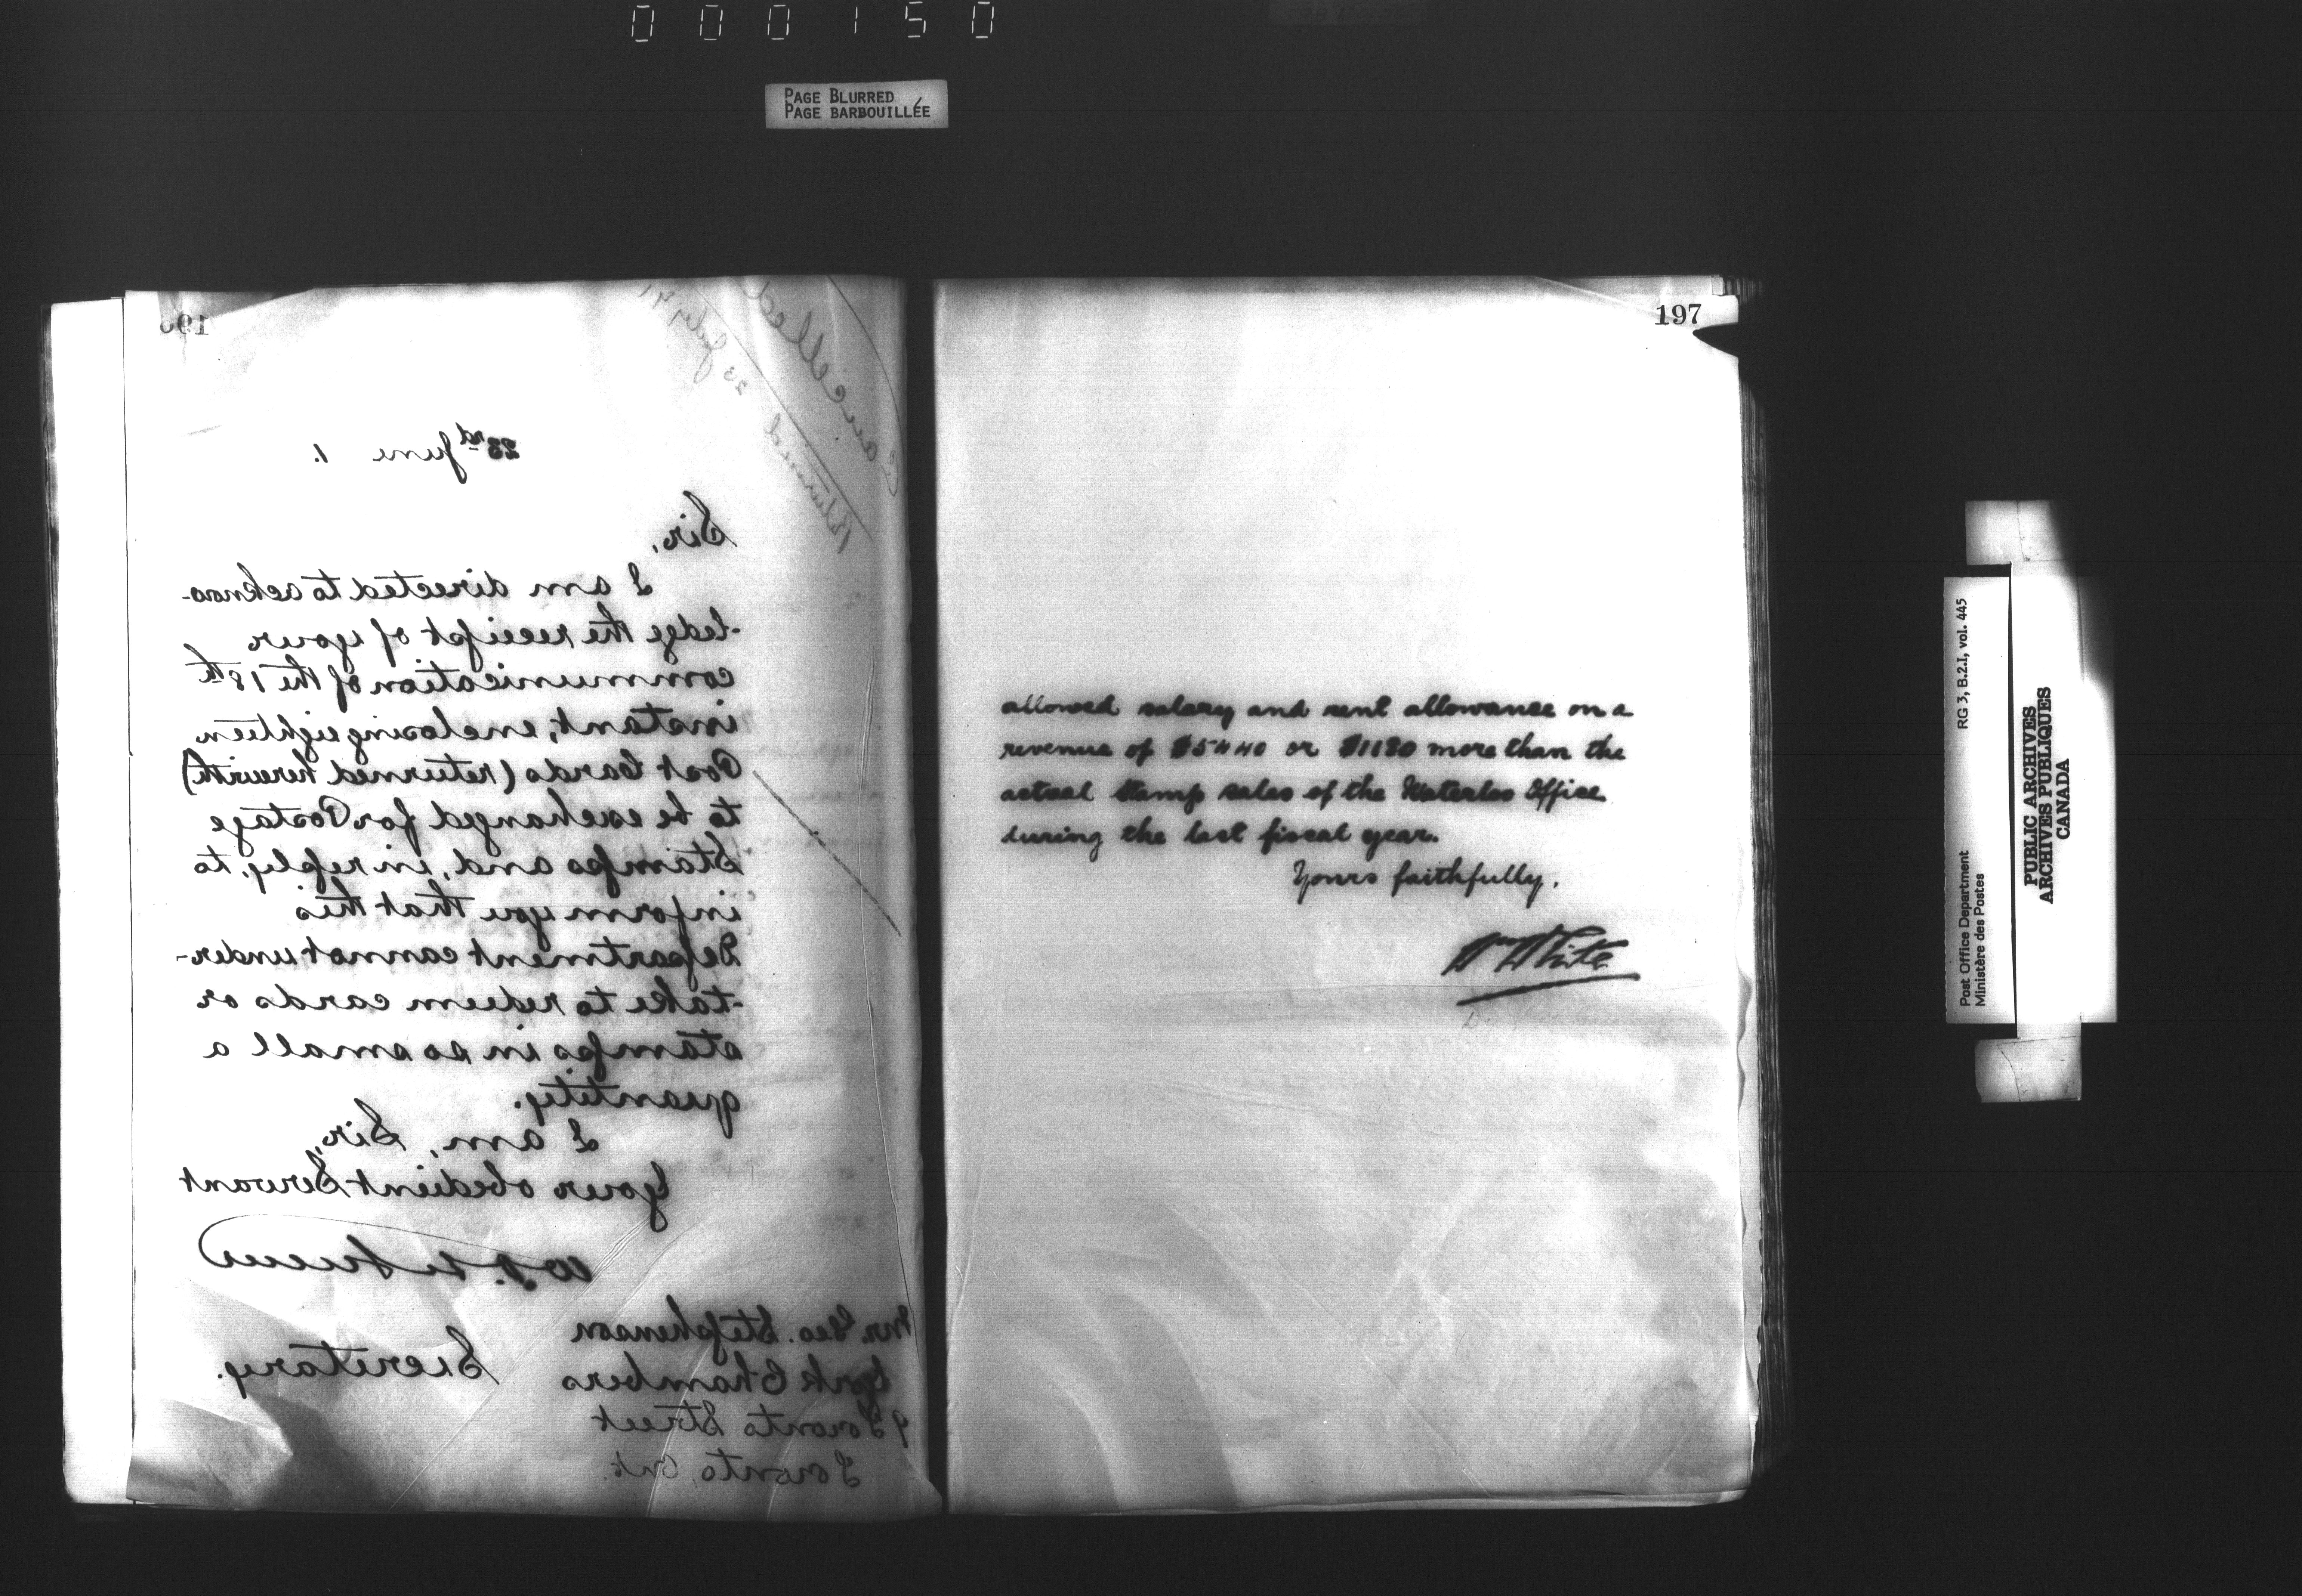 000150
PAGE BLURRED
PAGE BARBOUILLÉE
196
Cancelled
Returned 23 July 91
23rd June 1.
Sir,
I am directed to acknow-
-ledge the receipt of your
communication of the 18th
instant, enclosing eighteen
Post Cards (returned herewith)
to be exchanged for Postage
Stamps and, in reply, to
inform you that this
Department cannot under-
-take to redeem cards or
stamps in so small a
quantity.
I am, Sir,
Your obedient Servant
Secretary.
Mr. Geo. Stephenson
York Chambers
9 Toronto Street
Toronto, Ont.
197
allowed salary and rent allowance on a
revenue of $5440 or $1180 more than the
actual stamp sales of the Waterloo Office
during the last fiscal year.
Yours faithfully.
Wm White
Post Office Department RG 3, B.2.I, vol. 445
Ministère des Postes
PUBLIC ARCHIVES
ARCHIVES PUBLIQUES
CANADA